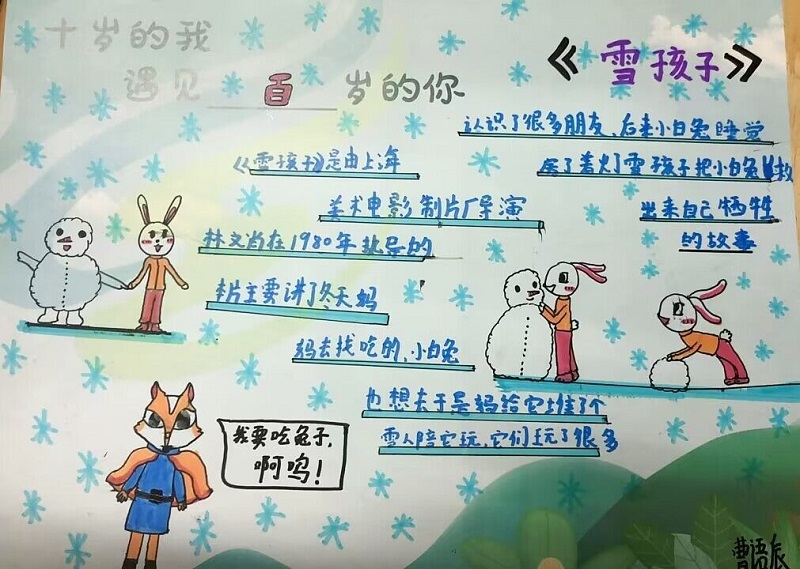 十岁的我
遇见百岁的你
《雪孩子》
《雪孩子》是由上海
美术电影制片厂导演
林文肖在1980年执导的
本片主要讲了冬天妈
妈去找吃的，小白兔
也想去于是妈给它堆了个
雪人陪它玩，它们玩了很多
认识了很多朋友、后来小白兔睡觉
屋了着火了雪孩子把小白兔救
出来自己牺牲
的故事
我要吃兔子，
啊呜！